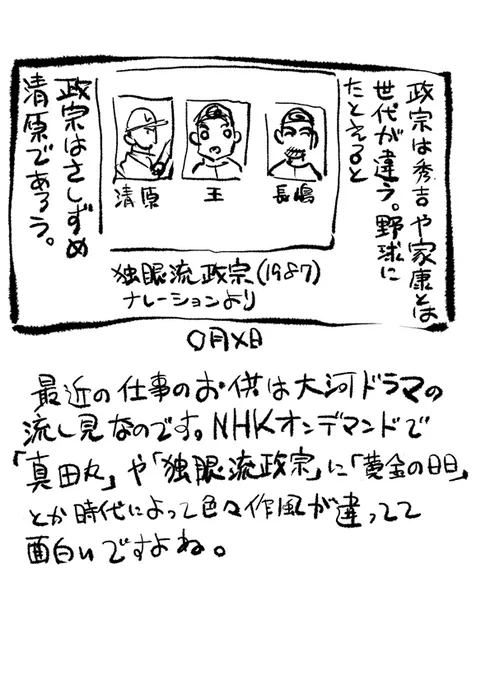 政宗は秀吉や家康とは
世代が違う。野球に
たとえると
長嶋
王
清原
政宗はさしずめ
清原であろう。
独眼流政宗(1987)
ナレーションより
〇月×日
最近の仕事のお供は大河ドラマの
流し見なのです。NHKオンデマンドで
「真田丸」や「独眼流政宗」に「黄金の日日」
とか時代によって色々作風が違ってて
面白いですよね。